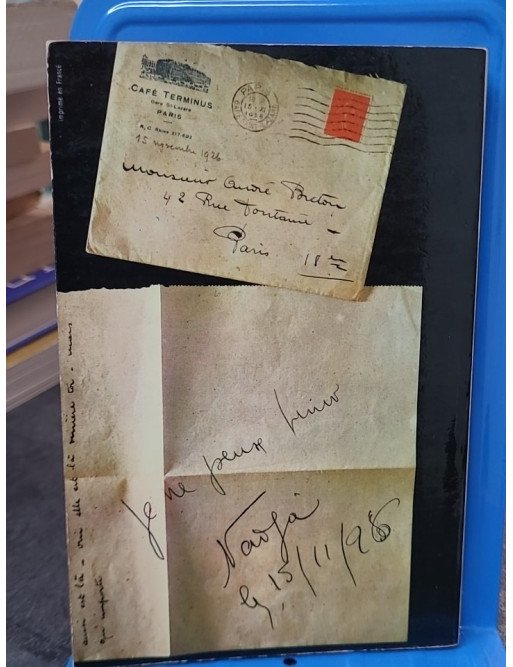 Imprimé en France
CAFÉ TERMINUS
Gare St-Lazare
PARIS
R.C. Seine 217-692
15 novembre 1926
PARIS
15 XI
1926
Monsieur André Breton
42 Rue Fontaine
Paris 18e
Je ne peux finir
Nadja
le 15/11/26
aussi est là - oui elle est là derrière toi - mais
qui importe